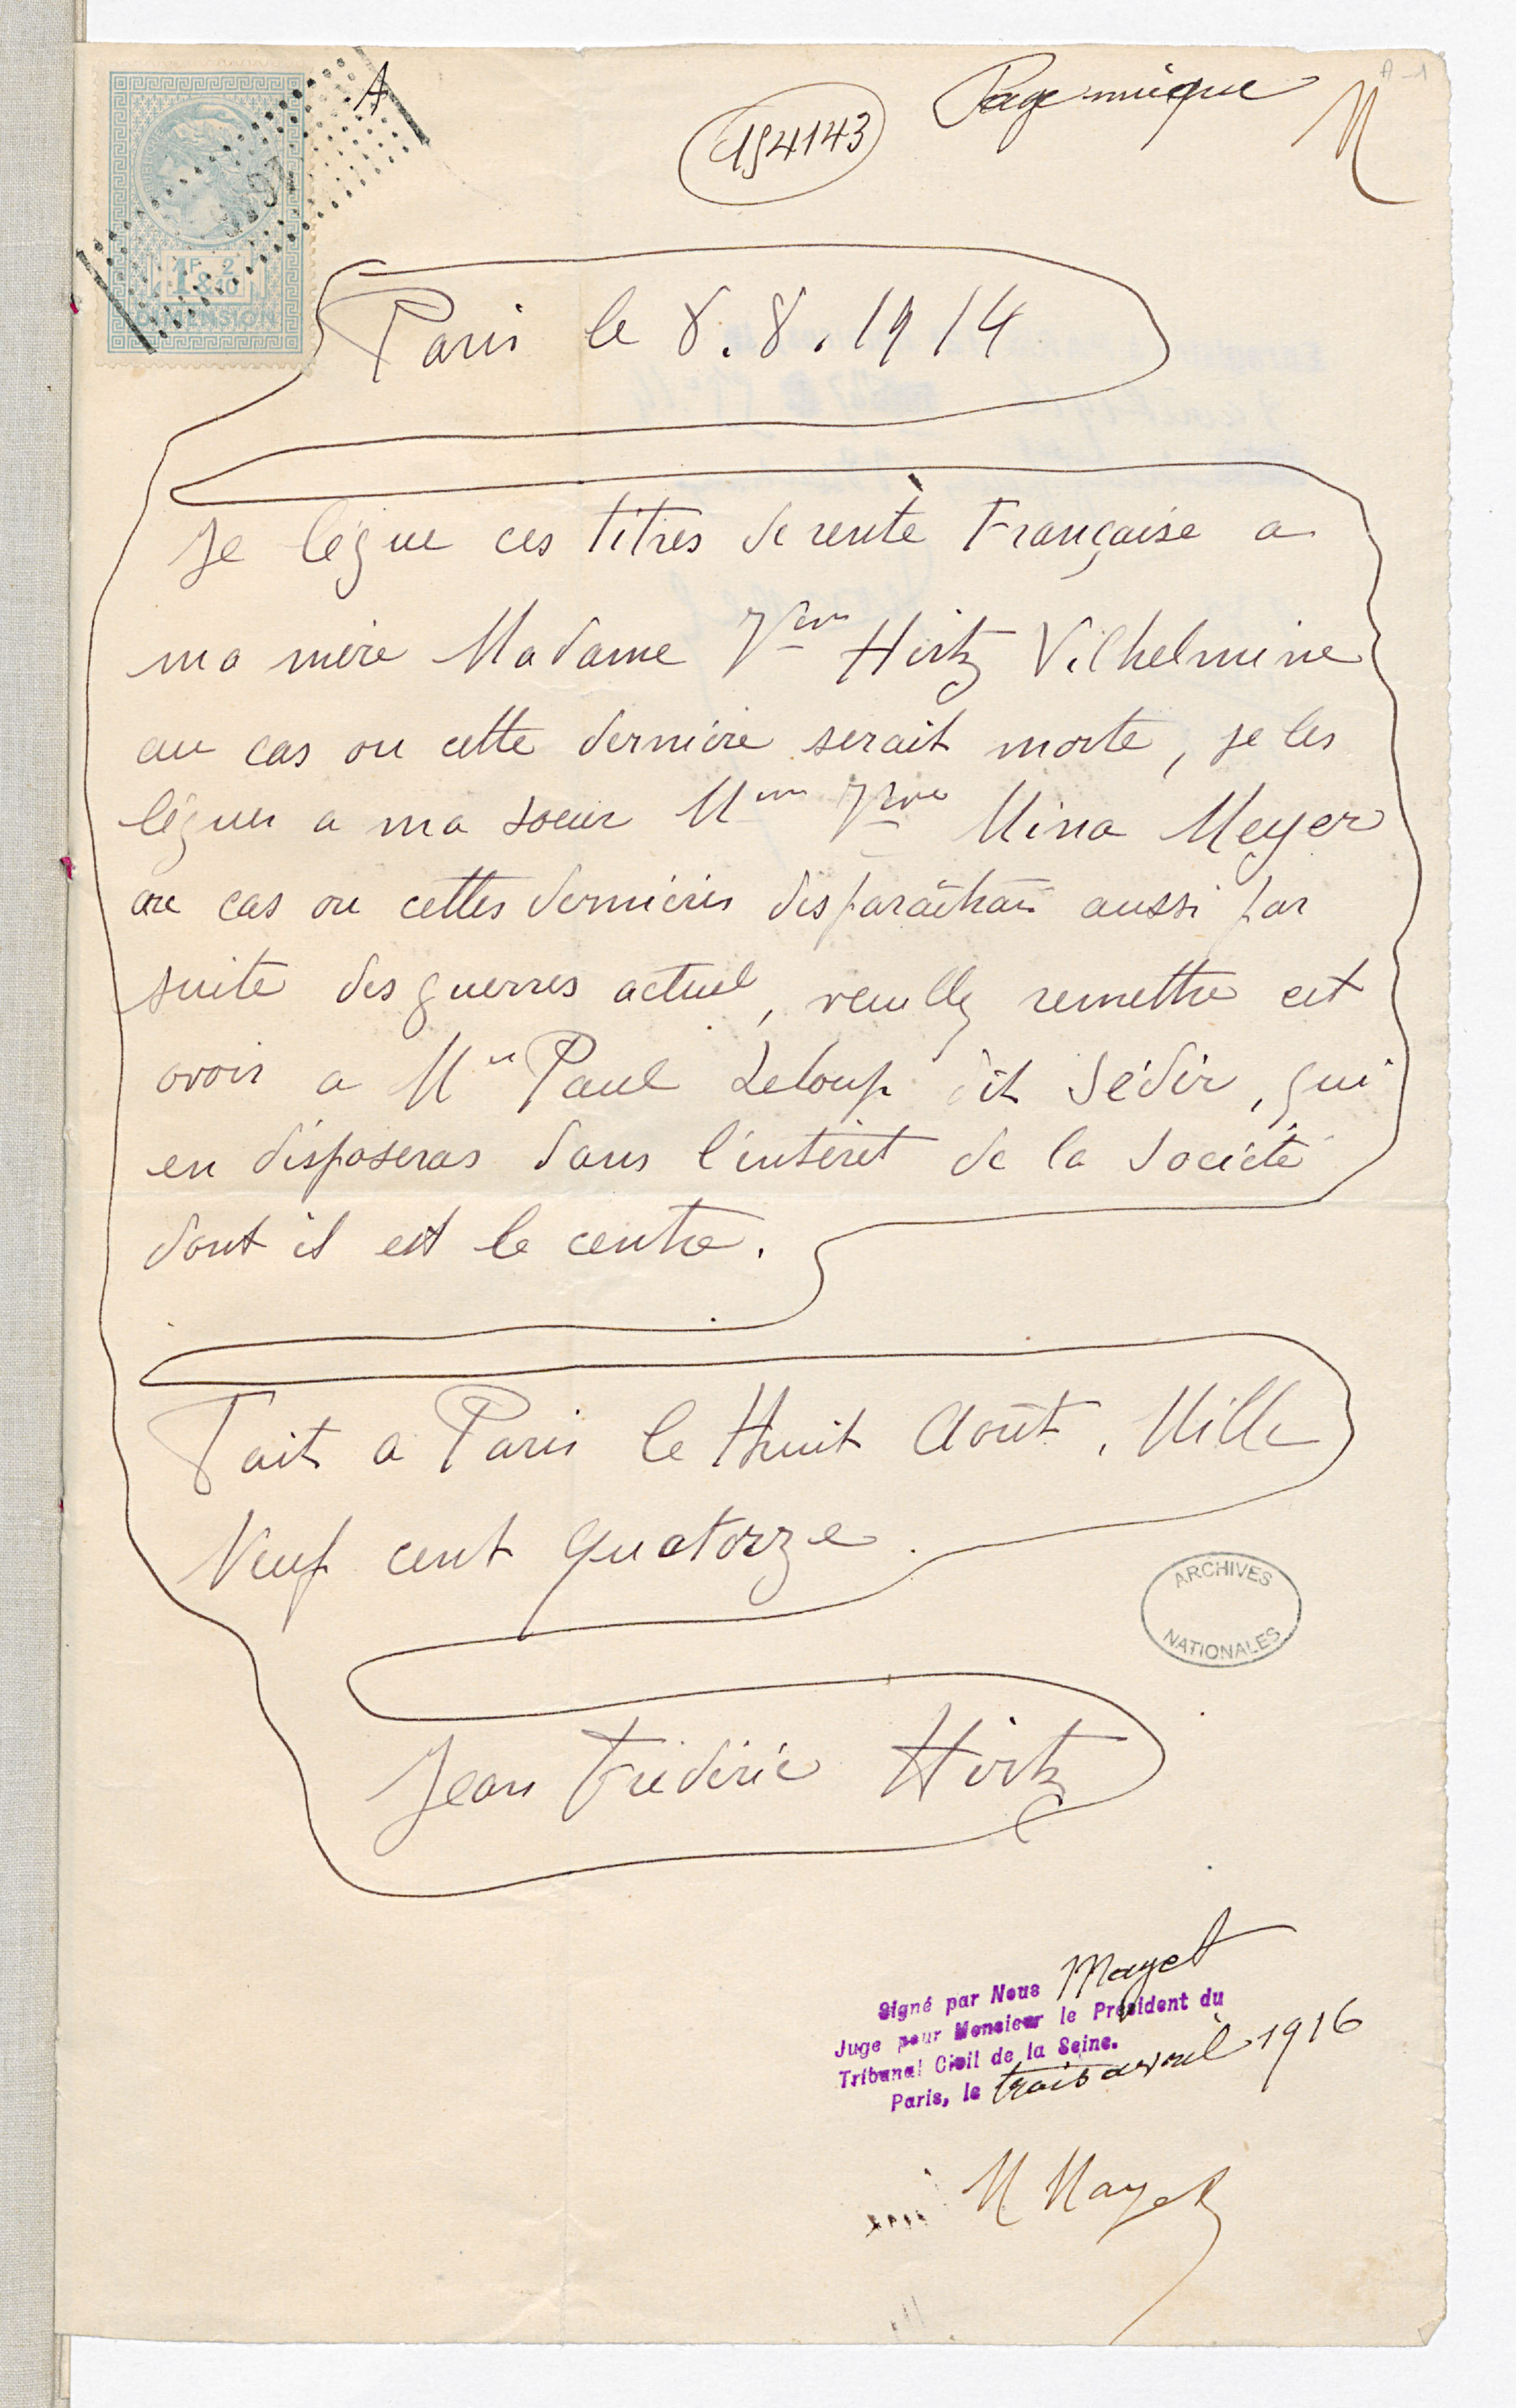 A
154143
Page unique
M
A-1
1F 2
& 10
DIMENSION
Paris le 8.8.1914
Je légue ces titres de rente Française a
ma mère Madame Vve Hirtz Vilhelmine
au cas ou cette dernière serait morte, je les
légue a ma soeur Mme Vve Mina Meyer
au cas ou cettes dernières disparaîtrait aussi par
suite des guerres actuel, veuillez remettre cet
avoir a Mr Paul Leloup dit Sédir, qui
en disposeras dans l'intérêt de la Société
dont il est le centre.
Fait a Paris le Huit Août, Mille
Neuf cent quatorze.
ARCHIVES
NATIONALES
Jean Frédéric Hirtz
Signé par Nous Mayet
Juge pour Monsieur le Président du
Tribunal Civil de la Seine.
Paris, le trois avril 1916
M Mayet